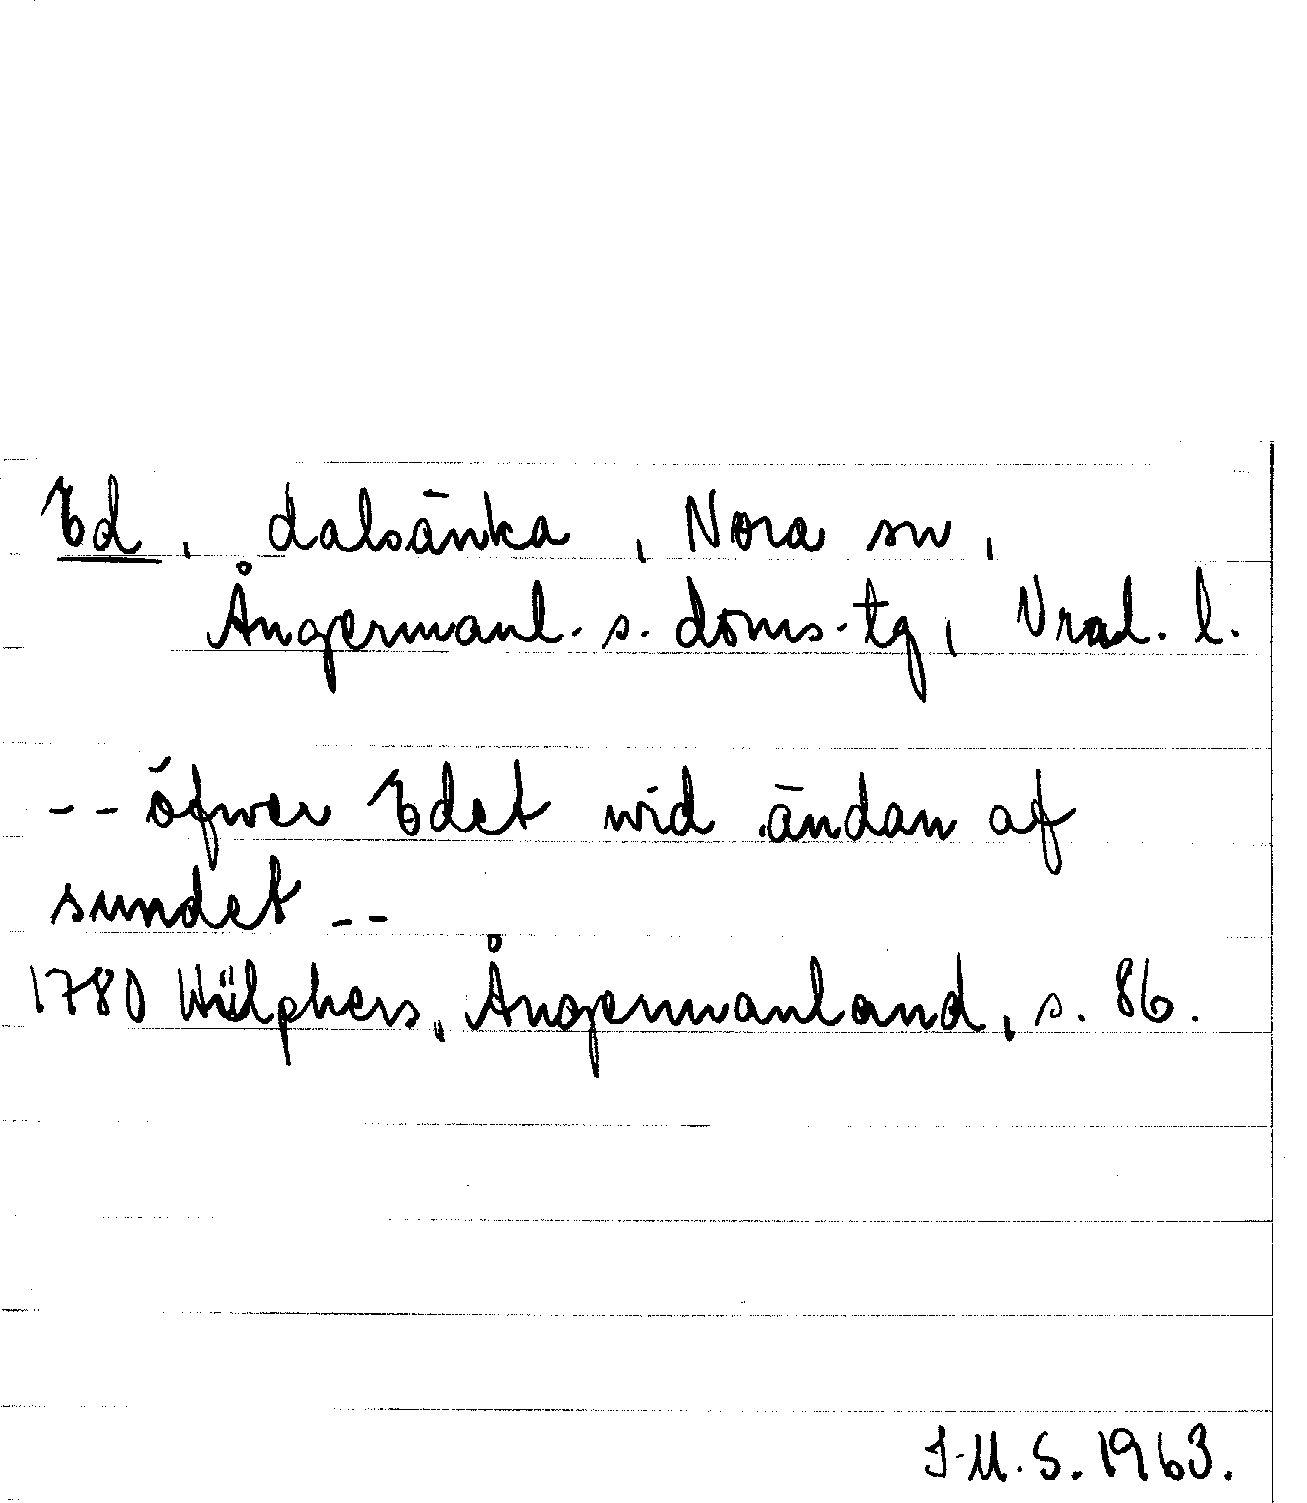 Ed, dalsänka, Nora sn,
Ångermanl. s. doms. tg, Vnal. l.
-- öfwer Edet wid ändan af
sundet --
1780 Hülphers, Ångermanland, s. 86.
J.M.S. 1963.